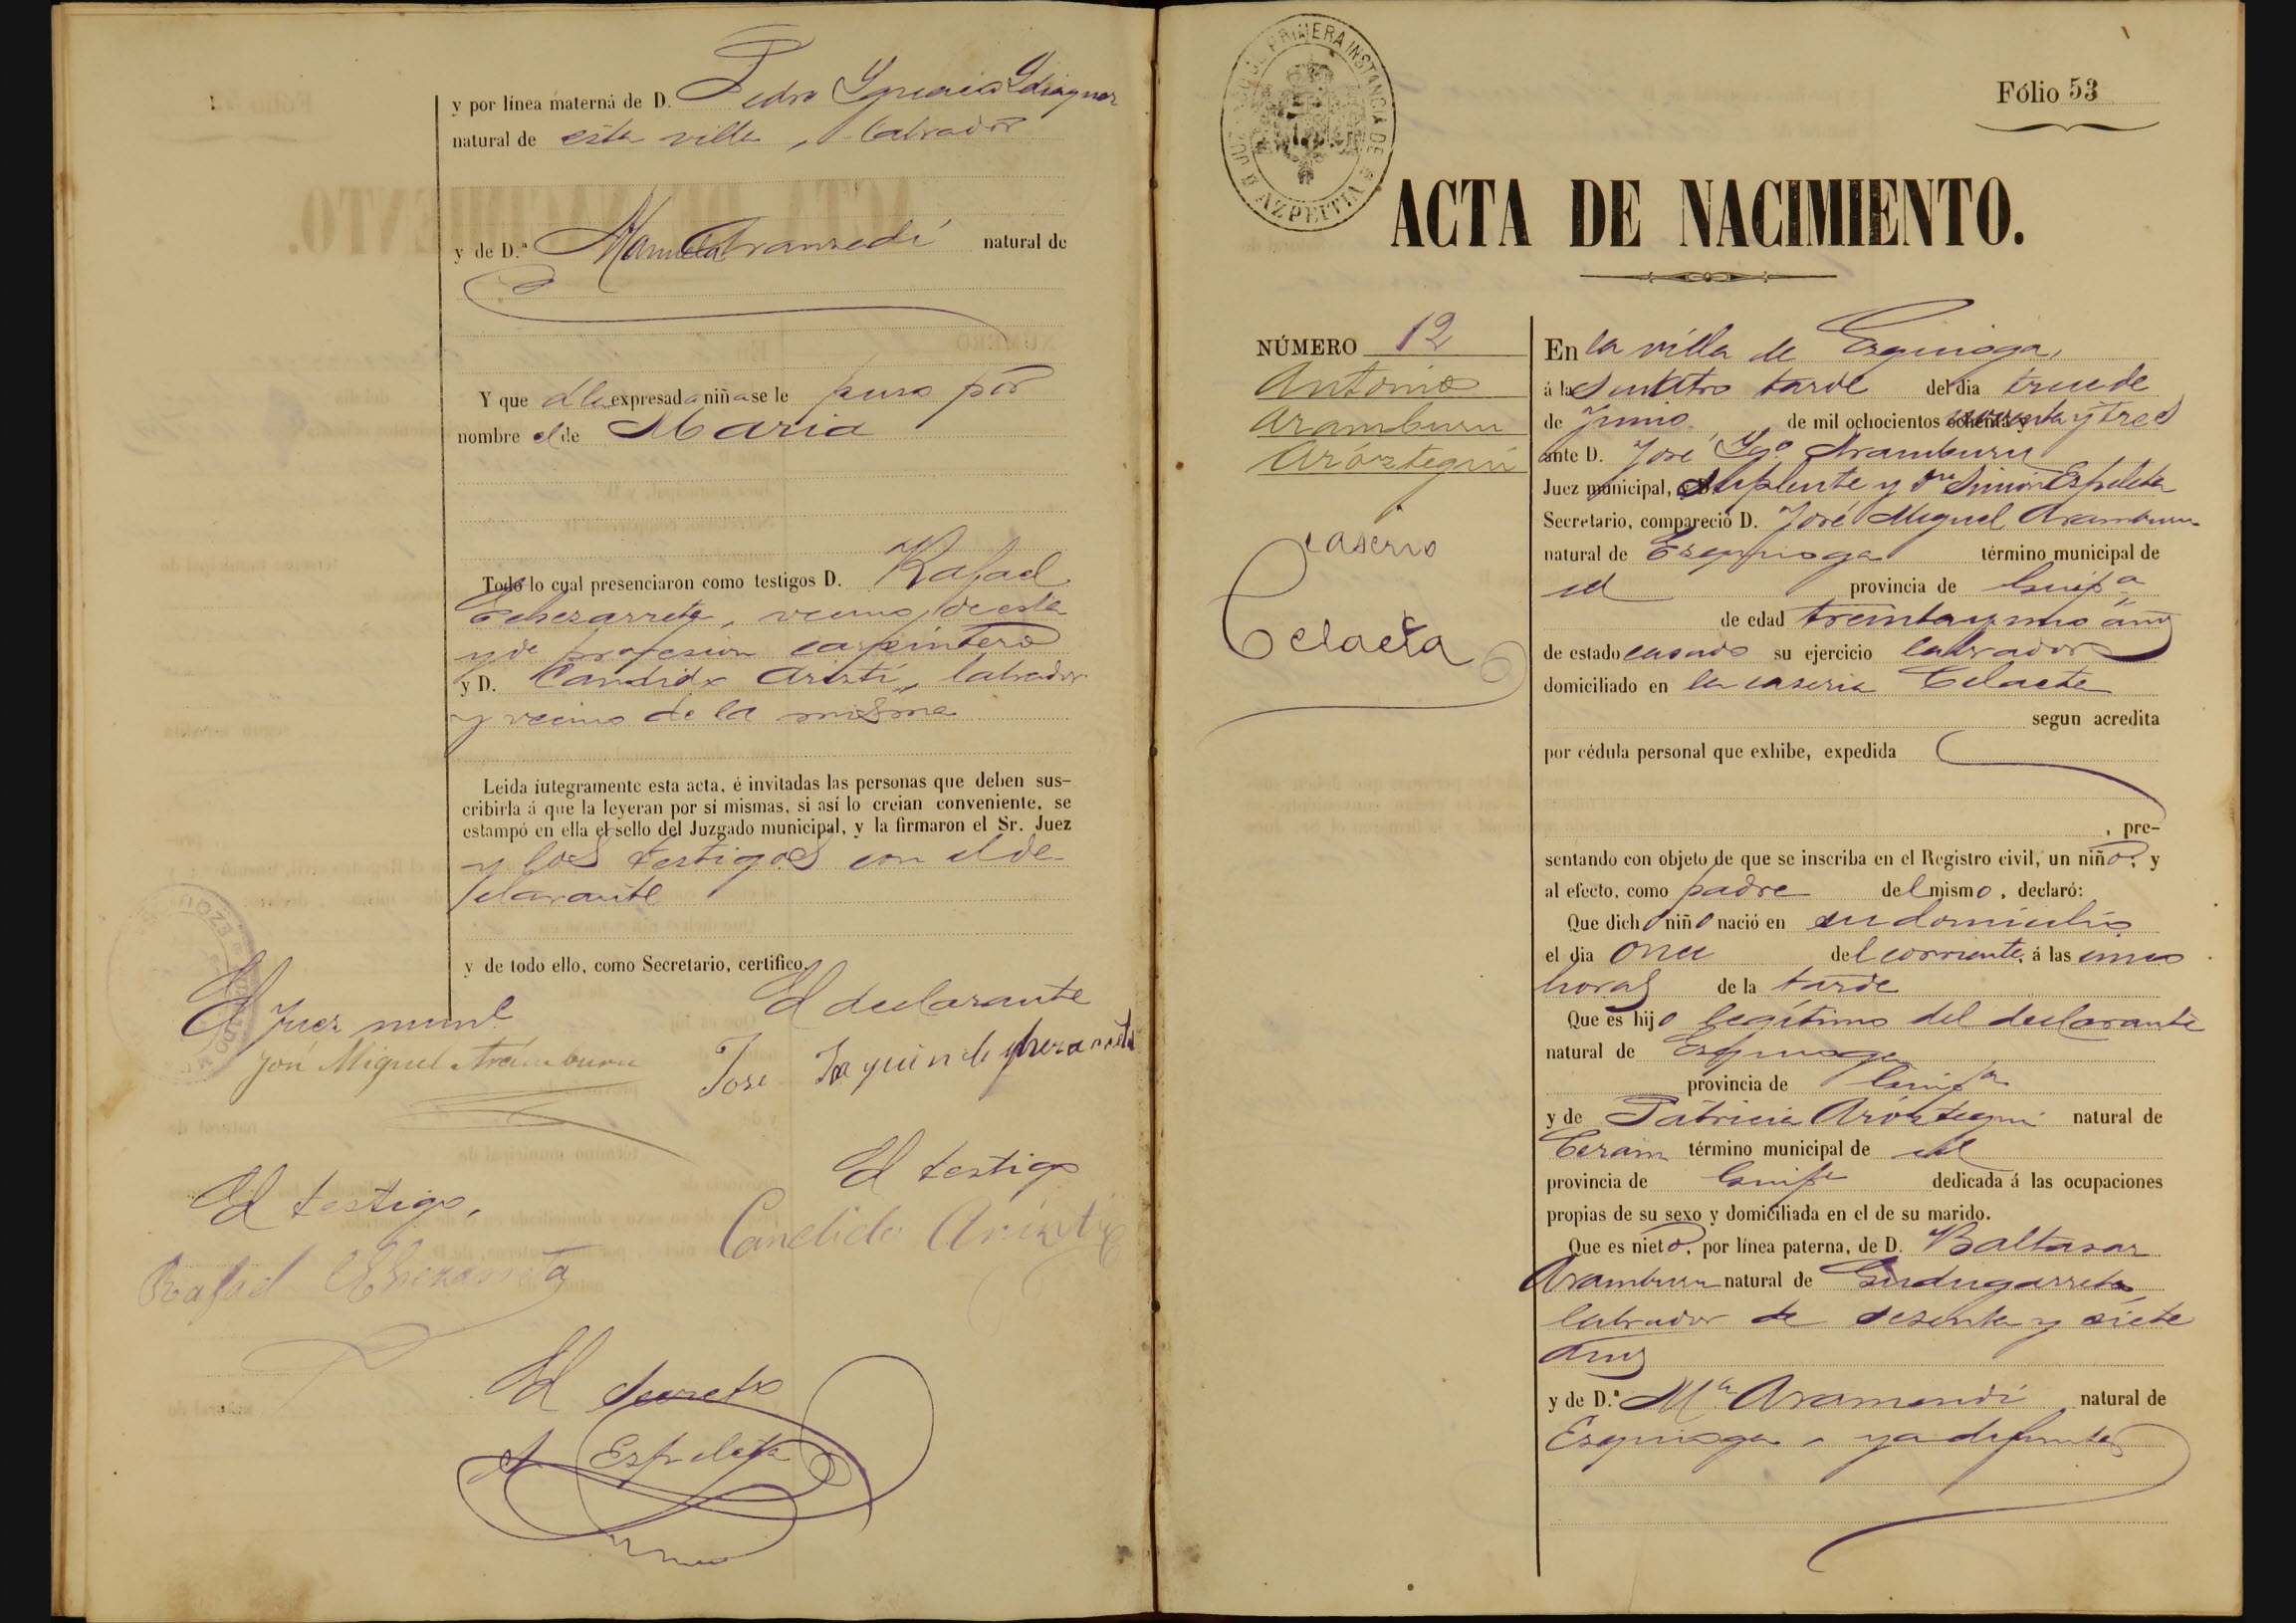 y por línea materna de D. Pedro Ygnacio Ydiaquez
natural de esta villa, labrador
y de D.ª Manuela natural de
Y que á la expresada niña se le puso por
nombre el de Maria
Todo lo cual presenciaron como testigos D. Rafael
Echezarreta, vecino de esta
y de profesion carpintero
y D. Candido Aristi, labrador
y vecino de la misma
Leida integramente esta acta, é invitadas las personas que deben sus-
cribirla á que la leyeran por sí mismas, si así lo creian conveniente, se
estampó en ella el sello del Juzgado municipal, y la firmaron el Sr. Juez
y los testigos con el de-
clarante
y de todo ello, como Secretario, certifico.
El Juez munl
José Miguel Aramburu
El declarante
Jose Joaquin de
El testigo,
Rafael Echezarreta
El testigo
Candido Aristi
El Secreto
Espeleta
JUZGADO DE PRIMERA INSTANCIA DE AZPEITIA
Fólio 53
ACTA DE NACIMIENTO.
NÚMERO 12
Antonio
Aramburu
Aróztegui
Caserio
Celaeta
En la villa de Ezquioga,
á las cuatro tarde del dia trece de
de Junio de mil ochocientos ochenta y noventa y tres
ante D. José Ygo. Aramburu
Juez municipal, suplente y Dn Simon Espeleta
Secretario, compareció D. José Miguel Aramburu
natural de Ezquioga término municipal de
id provincia de Guipa
de edad treinta y uno años
de estado casado su ejercicio labrador
domiciliado en la caseria Celaeta
segun acredita
por cédula personal que exhibe, expedida
, pre-
sentando con objeto de que se inscriba en el Registro civil, un niño, y
al efecto, como padre del mismo, declaró:
Que dicho niño nació en su domicilio
el dia once del corriente, á las cinco
horas de la tarde
Que es hijo legítimo del declarante
natural de Ezquioga
provincia de Guipa
y de Patricia Aróztegui natural de
Cerain término municipal de id
provincia de Guipa dedicada á las ocupaciones
propias de su sexo y domiciliada en el de su marido.
Que es nieto, por línea paterna, de D. Baltasar
Aramburu natural de Gudugarreta
labrador de sesenta y siete
años
y de D.ª Ma Aramendi natural de
Ezquioga, ya difunta